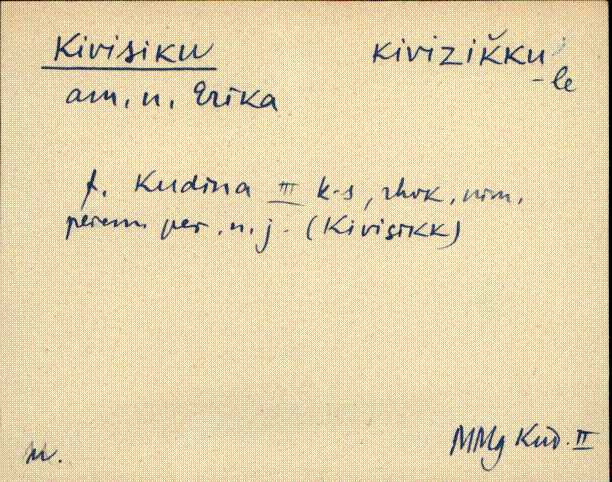 Kivisiku kivizikˇku
-le
am. n. Erika
t. Kudina III k-s, rhvk. nim.
perem. per. n. j. (Kivisikk)
M.
MMg Kud. II